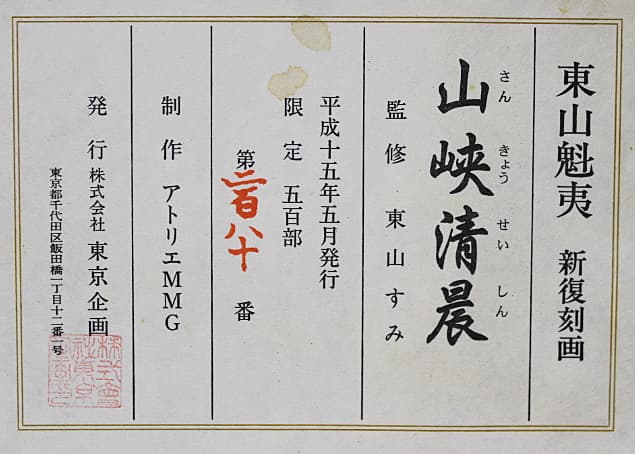 東山魁夷 新復刻画
さん きょう せい しん
山峡清晨
監修 東山すみ
平成十五年五月発行
限定 五百部
第二百八十番
制作 アトリエMMG
発行 株式会社 東京企画
東京都千代田区飯田橋一丁目十二番一号
株式會
社東京